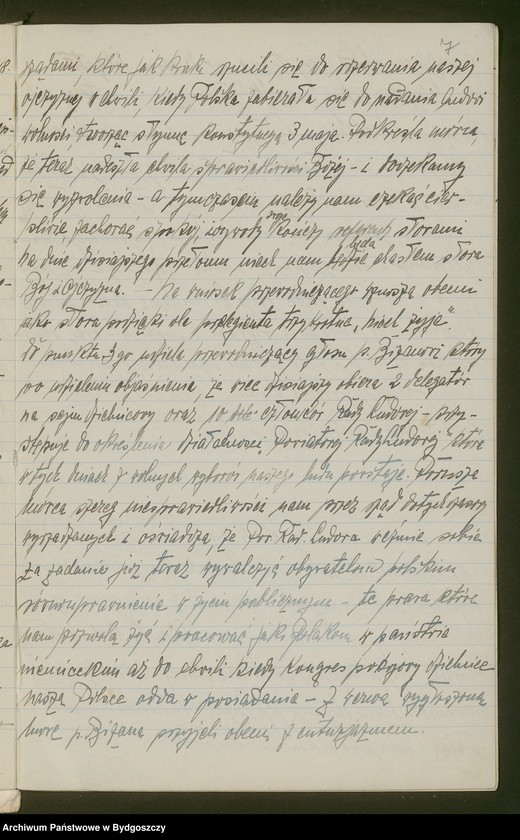 7
rządami które jak kruki rzucili się do rozerwania naszej
ojczyzny w chwili, kiedy Polska zabierała się do nadania ludowi
wolności tworząc słynną Konstytucyę 3 maja. Podkreśla mówca,
że teraz nadeszła chwila sprawiedliwości Bożej - i doczekamy
się wyzwolenia - a tymczasem należy nam czekać cier-
pliwie, zachować spokój, wywody swe kończy mówca słowami
Na dnie dzisiejszego przełomu niech nam będą hasłem słowa
Bóg i Ojczyzna. - Na wniosek przewodniczącego wznoszą obecni
jako słowa podzięki dla prelegenta trzykrotne „niech żyje".
Do punktu 3go udziela przewodniczący głosu p. Biżanowi który
po udzieleniu objaśnienia, że wiec dzisiejszy obiera 2 delegatów
na sejm dzielnicowy oraz 10 członków Rady Ludowej - przy-
stępuje do określenia działalności Powiatowej Rady Ludowej która
w tych dniach z wolnych wyborów naszego ludu powstaje. Porusza
mówca szereg niesprawiedliwości nam przez rząd dotychczasowy
wyrządzanych i oświadcza, że Pow. Rad. Ludowa weźmie sobie
za zadanie już teraz wywalczyć obywatelom polskim
równouprawnienia w życiu publicznym - te prawa które
nam pozwolą żyć i pracować jak Polakom w państwie
niemieckim aż do chwili kiedy kongres pokojowy dzielnice
naszą Polsce odda w posiadanie - Z werwą wygłoszoną
mowę p. Biżana przyjęli obecni z entuzjazmem.
Archiwum Państwowe w Bydgoszczy